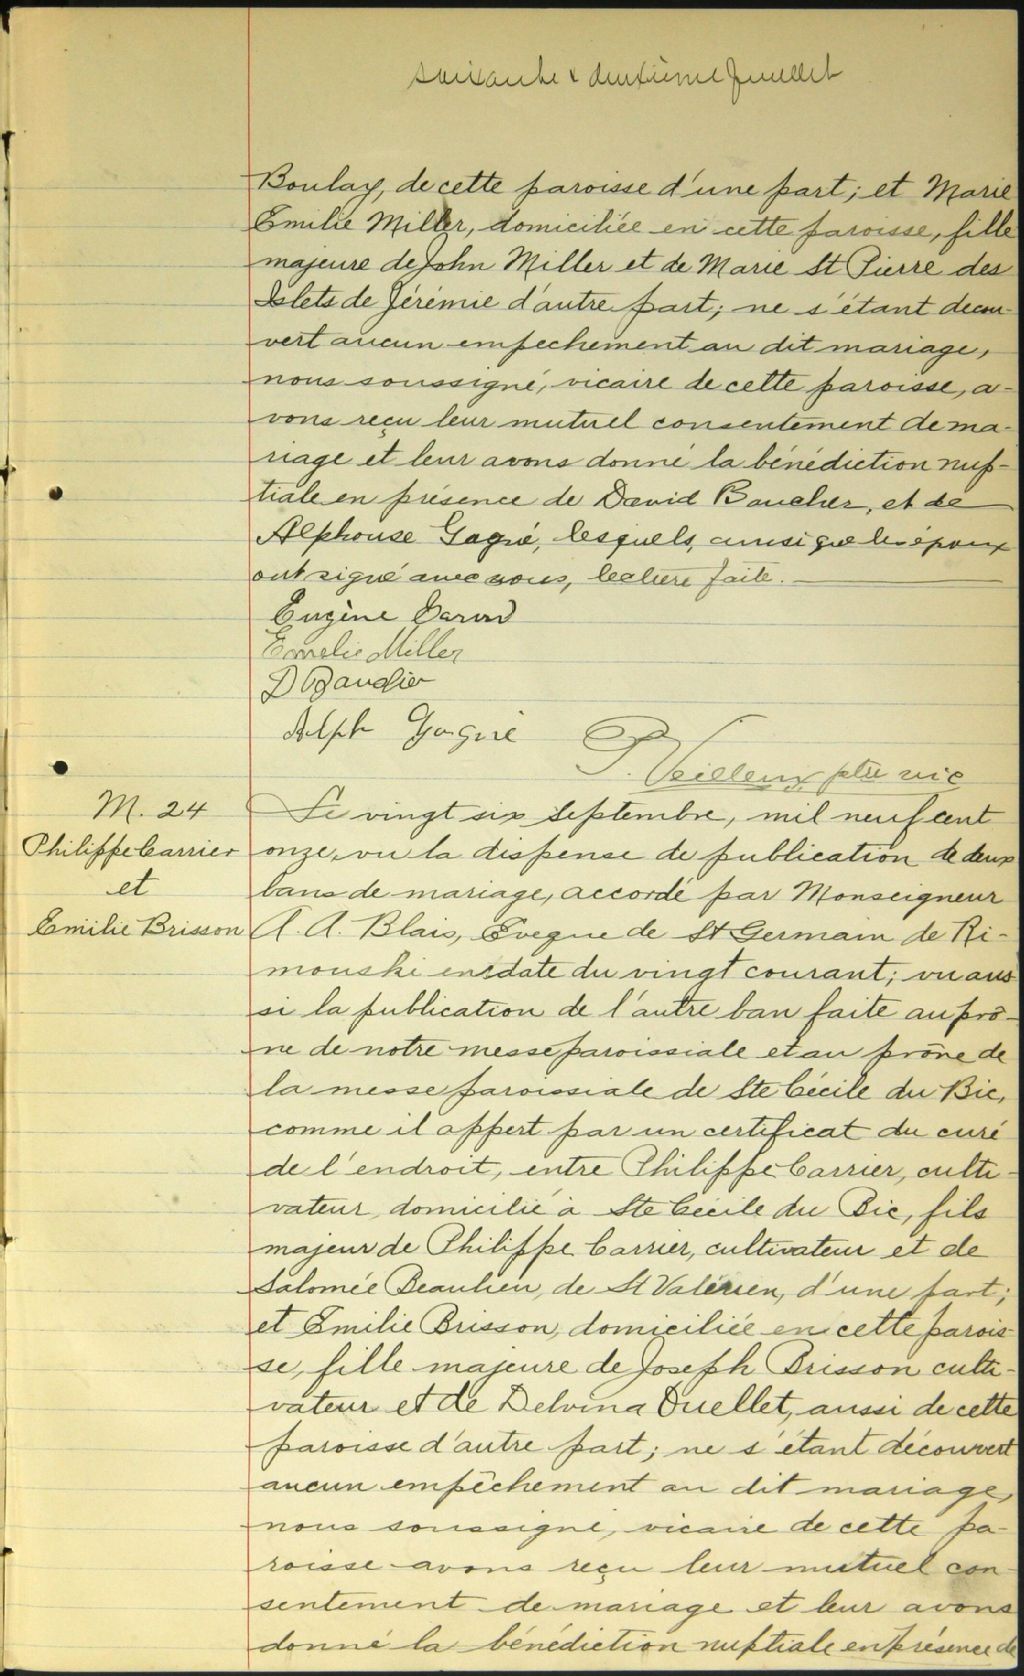 soixante & deuxième feuillet
Boulay, de cette paroisse d'une part; et Marie
Emilie Miller, domiciliée en cette paroisse, fille
majeure de John Miller et de Marie St Pierre des
Islets de Jérémie d'autre part; ne s'étant decou-
vert aucun empechement au dit mariage,
nous soussigné, vicaire de cette paroisse, a-
vons reçu leur mutuel consentement de ma-
riage et leur avons donné la bénédiction nup-
tiale en présence de David Boucher, et de
Alphonse Gagné, lesquels, ainsi que les époux
ont signé avec nous, lecture faite.
Eugène
Emelie Miller
D
Alph Gagné
P. Veilleux ptre vic
M. 24
Philippe Carrier
et
Emilie Brisson
Le vingt six Septembre, mil neuf cent
onze, vu la dispense de publication de deux
bans de mariage, accordé par Monseigneur
A. A. Blais, Eveque de St Germain de Ri-
mouski en date du vingt courant; vu aus
si la publication de l'autre ban faite au prô-
ne de notre messe paroissiale et au prône de
la messe paroissiale de Ste Cécile du Bic,
comme il appert par un certificat du curé
de l'endroit, entre Philippe Carrier, culti-
vateur, domicilié à Ste Cécile du Bic, fils
majeur de Philippe Carrier, cultivateur et de
Salomée Beaulieu, de St Valérien, d'une part;
et Emilie Brisson, domiciliée en cette parois-
se, fille majeure de Joseph Brisson culti-
vateur et de Delvina Ouellet, aussi de cette
paroisse d'autre part; ne s'étant découvert
aucun empêchement au dit mariage,
nous soussigné, vicaire de cette pa-
roisse avons reçu leur mutuel con-
sentement de mariage et leur avons
donné la bénédiction nuptiale en présence de